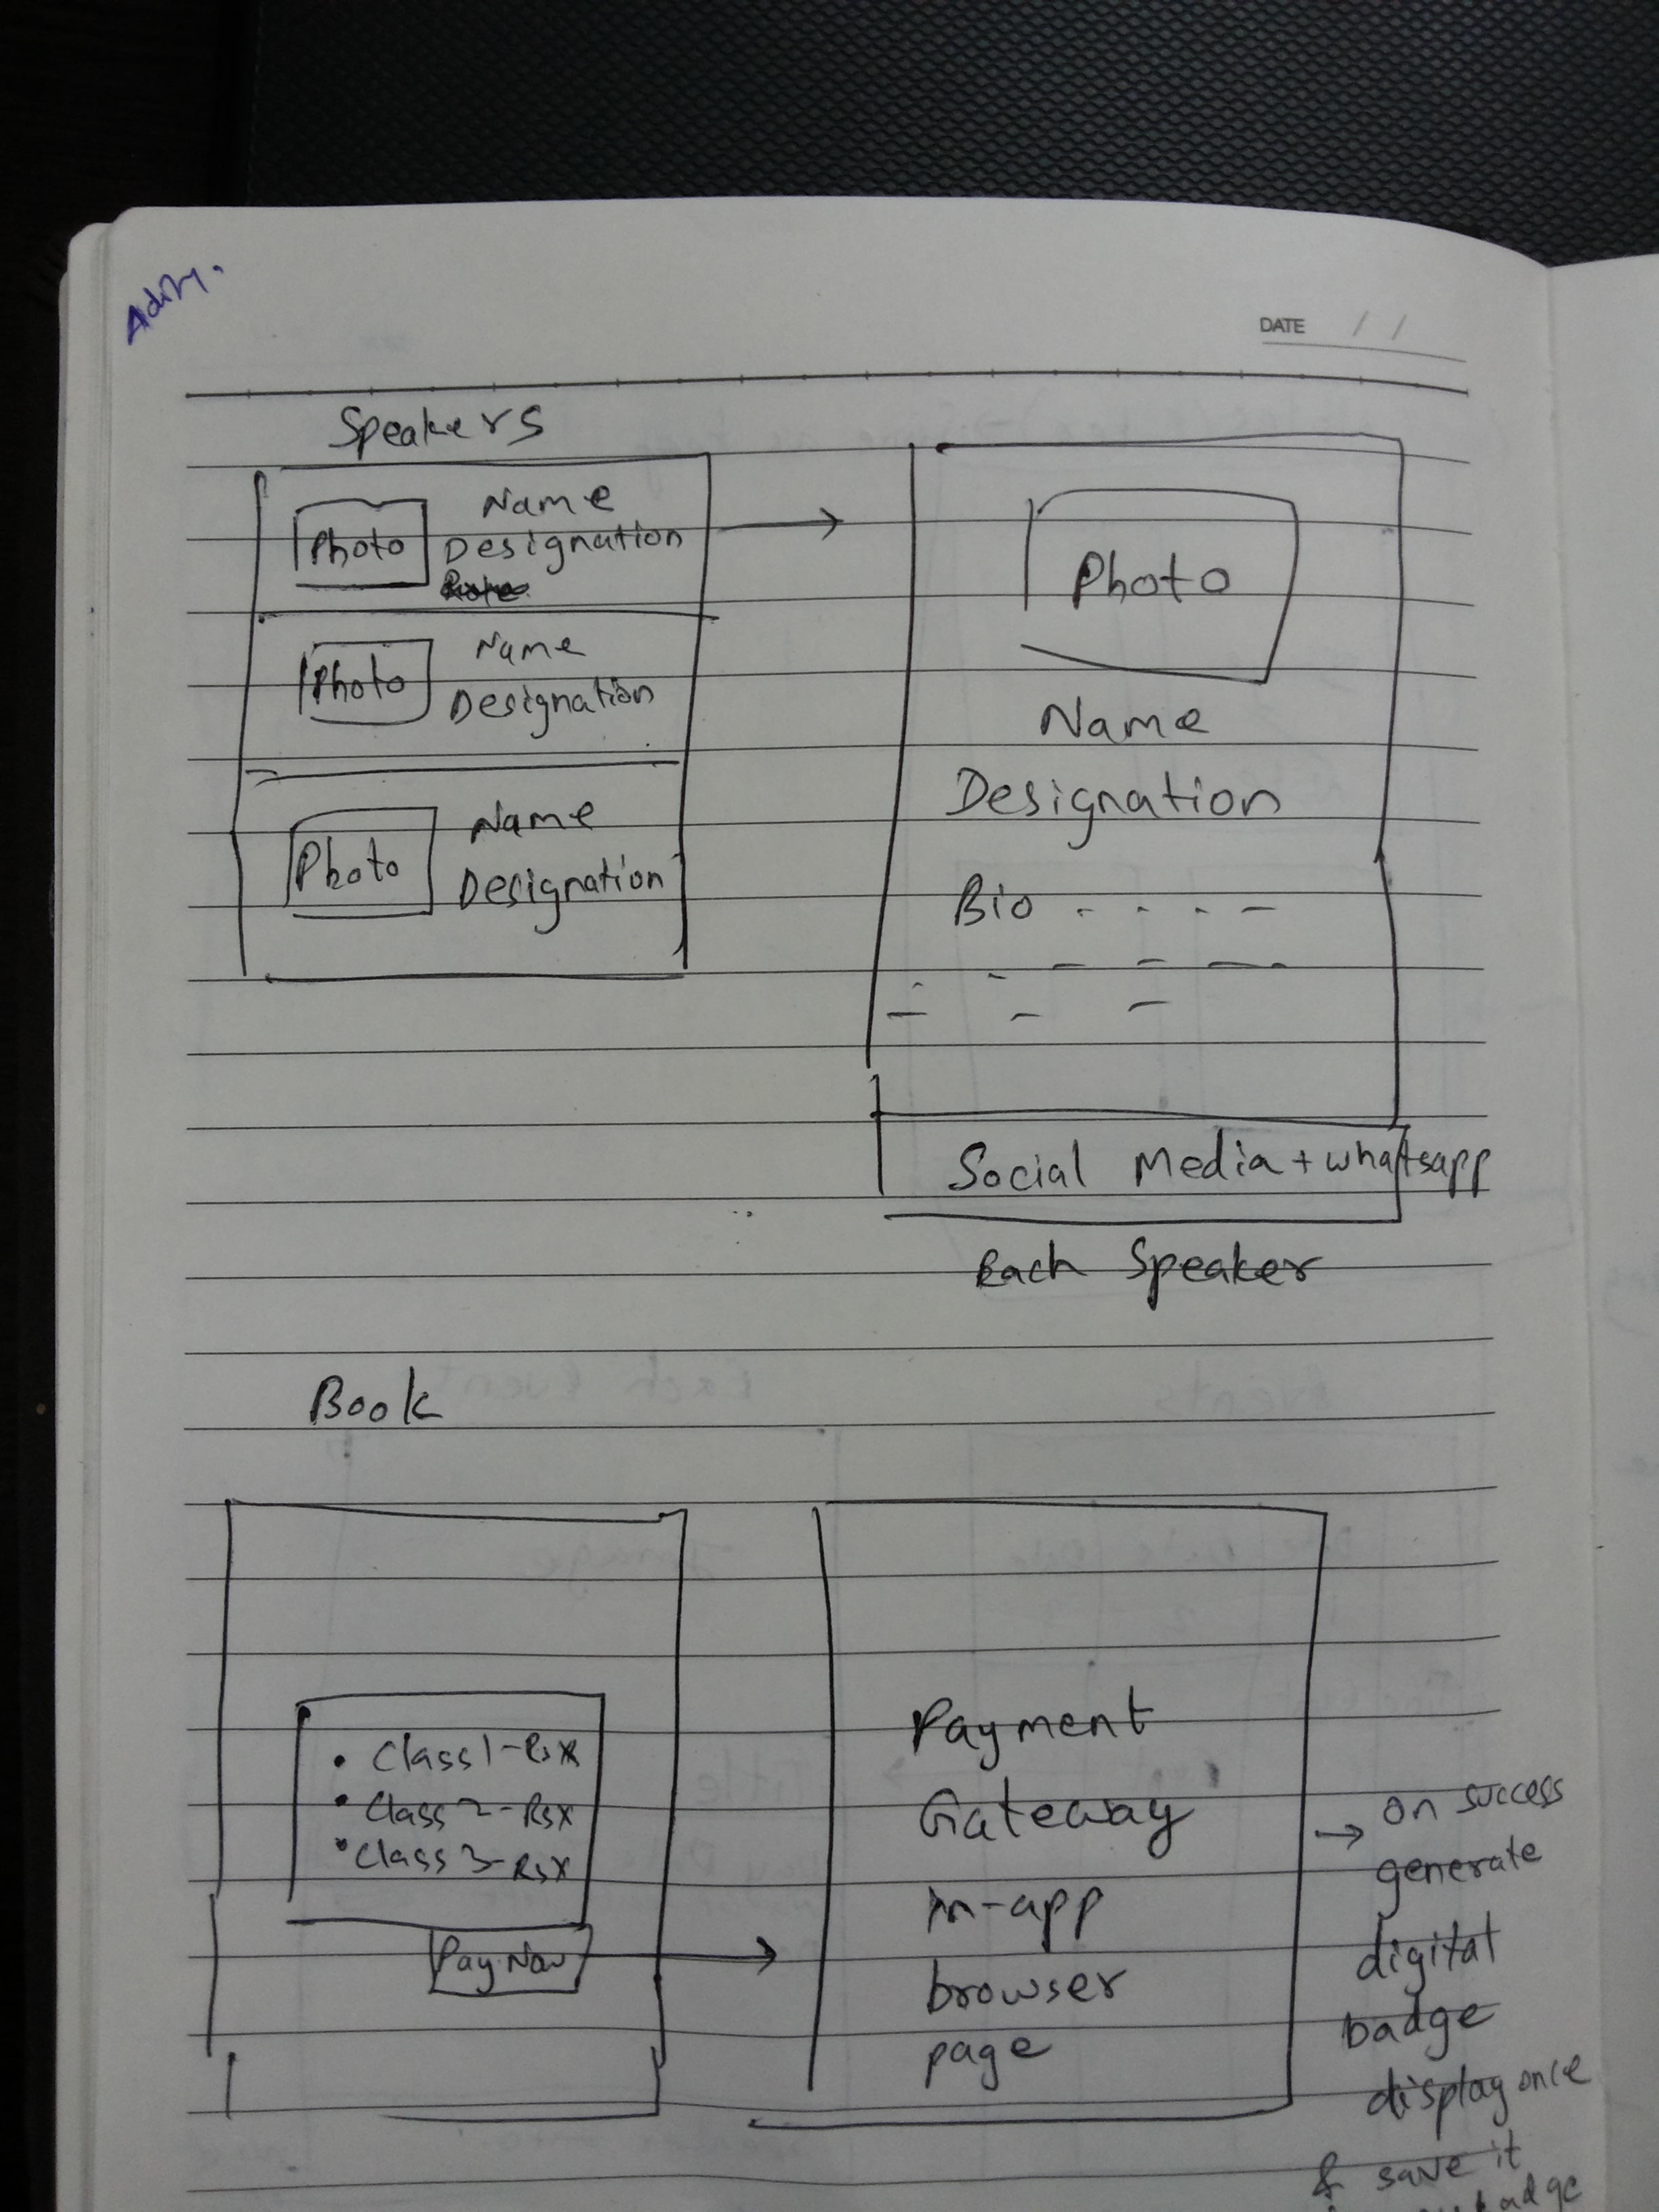 DATE / /
Speakers
Photo
Name
Designation
Photo
Name
Designation
Photo
Name
Designation
Photo
Name
Designation
Bio
Social Media + whatsapp
Each Speaker
Book
• Class 1 - Rs X
• Class 2 - Rs X
• Class 3 - Rs X
Pay Now
Payment
Gateway
in-app
browser
page
→ on success
generate
digital
badge
display once
& save it
badge